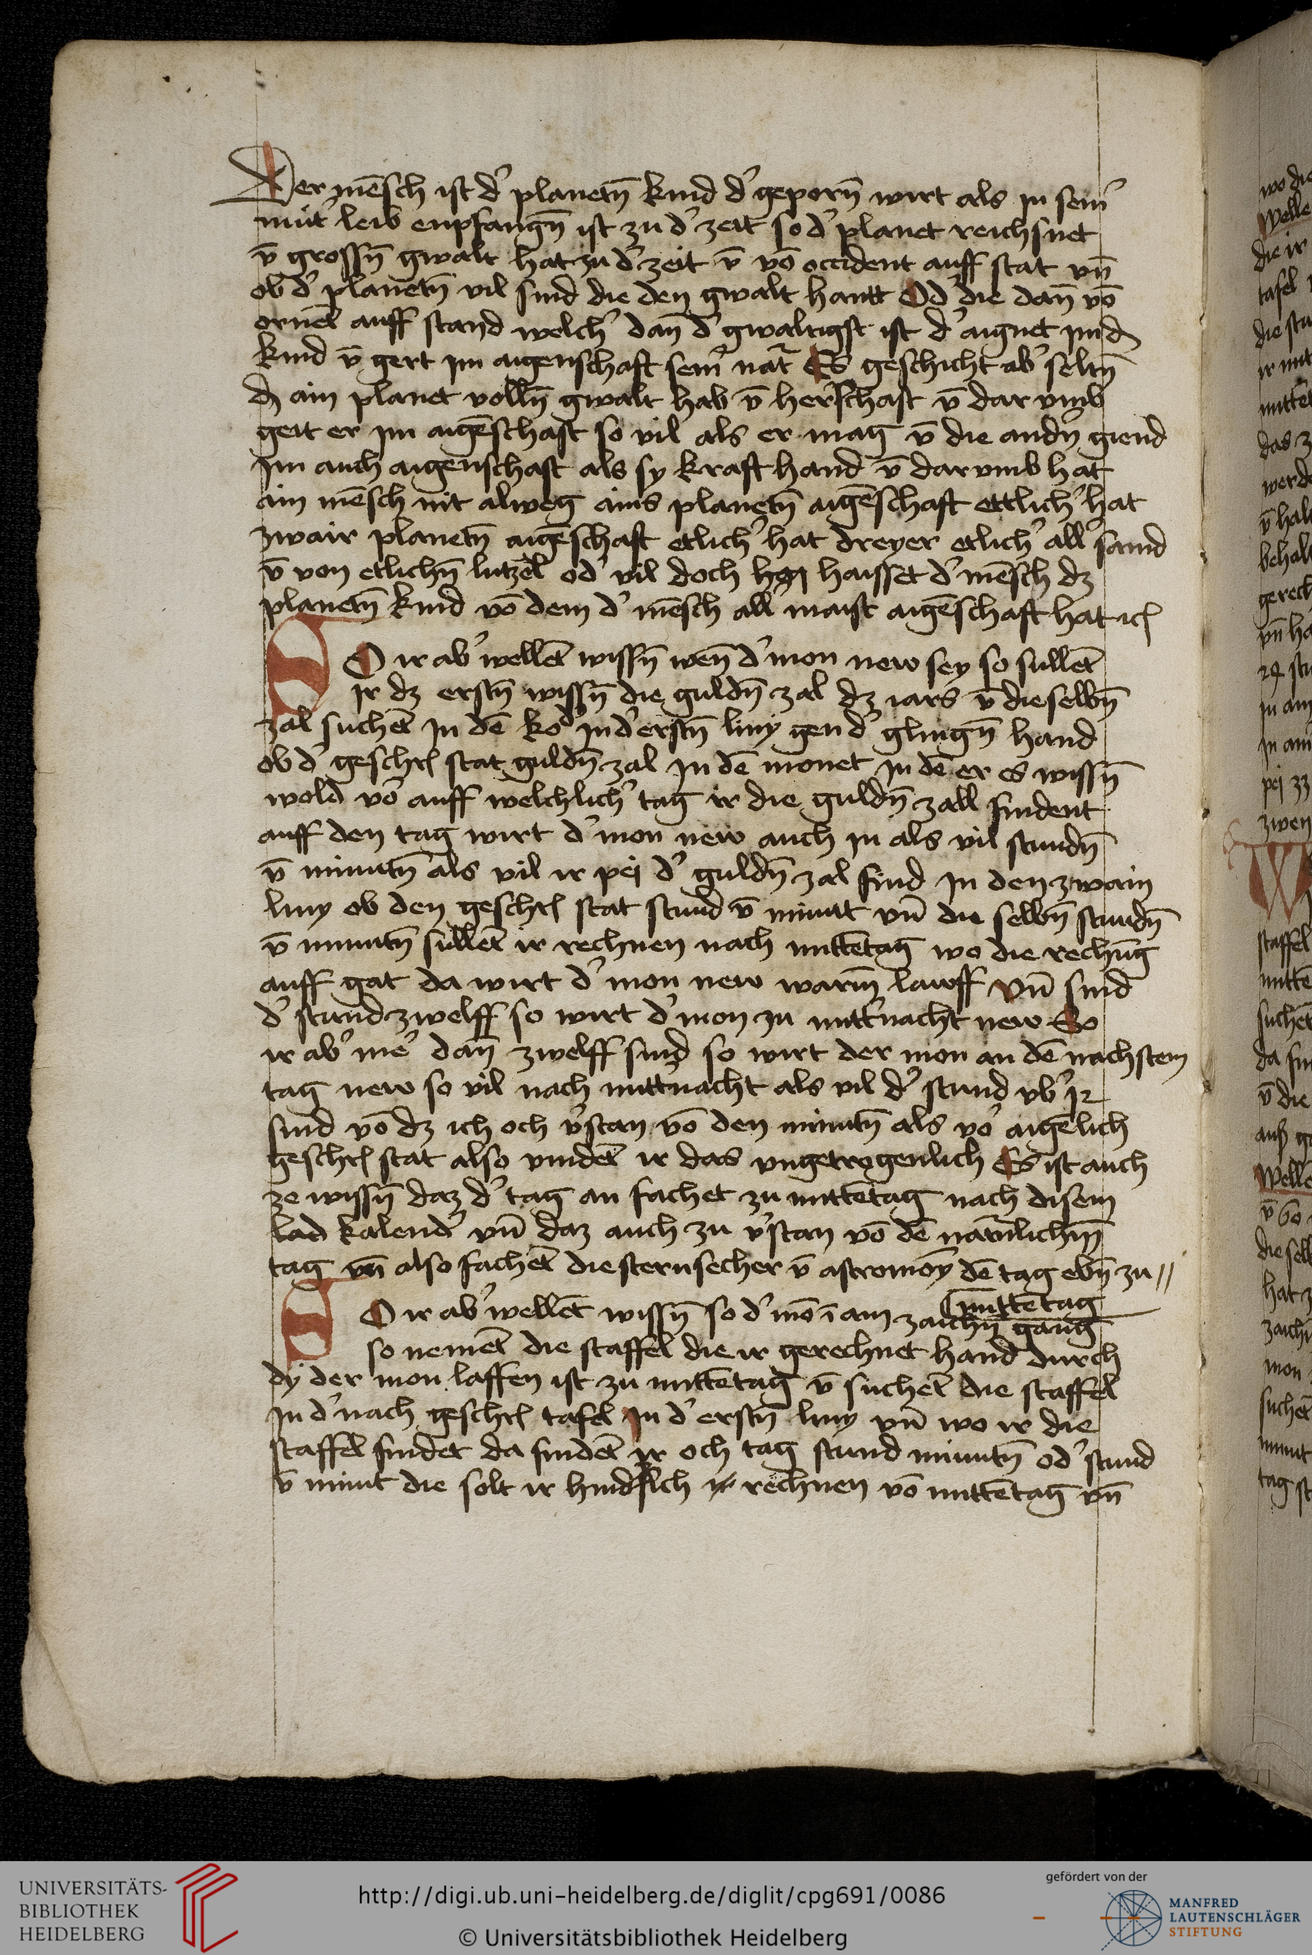 Der mēsch ist d' planetn̄ kind d' geporn̄ wirt als in sein'
mut' leib enpfangn̄ ist zu d' zeit so d' planet reichsnet
v̄ grossn̄ gwalt hat zu d' zeit v̄ vō occident auff stat vn̄
ob d' planetn̄ vil sind die den gwalt hantt Od' die dan̄ vō
orient auff stand welch' dan̄ d' gwaltigst ist d' aignet im d
kind v̄ gert im aigenschaft sein' nat' Es geschicht ab' seltn̄
dz ain planet volln̄ gwalt hab v̄ herschaft v̄ dar vmb
geit er im aigēschaft so vil als er mag v̄ die andn̄ giend
im auch aigenschaft als sy kraft hand v̄ dar vmb hat
ain mēsch nit alweg ains planetn̄ aigēschaft ettlich' hat
zwair planetn̄ aigēschaft etlich' hat dreyer etlich' all' samd
v̄ von etlichn̄ lutzel od' vil doch haisset d' mēsch dz
planetn̄ kind vō dem d' mēsch all' maist aigēschaft hat
So ir ab' wellēt wissn̄ wen̄ d' mon new sey so sullēt
ir dz erstn̄ wissn̄ die guldn̄ zal dz iars v̄ die selbn̄
zal suchēt in dē in d' erstn̄ liny gen d' glingn̄ hand
ob d' stat guldn̄ zal in dē monet in dē er es wissn̄
wold vō auff welchlich' tag ir die guldn̄ zall findent
auff den tag wirt d' mon new auch in als vil stundn̄
v̄ minutn̄ als vil ir pej d' guldn̄ zal find in den zwain
liny ob den stat stund v̄ minut vn̄ die selbn̄ stundn̄
v̄ minutn̄ sullēt ir rechnen nach mittētag wo die rechn̄g
auff gat da wirt d' mon new lawff vn̄ sind
d' stund zwelff so wirt d' mon zu mitt'nacht new So
ir ab' me' dan̄ zwelff sind so wirt der mon an dē nachstem
tag new so vil nach mitt'nacht als vil d' stund vb' 12
sind vō dz ich och v'stan vō den minutn̄ als vo' aigēlich
stat also vindēt ir das vngetrogenlich Es ist auch
ze wissn̄ daz d' tag an fachet zu mittētag nach disem
kalend' vn̄ daz auch zu v'stan vō dē
tag vn̄ also fachēt die sternsecher v̄ astromoy dē tag ebn̄ zu
mittētag
So ir ab' wellēt wissn̄ so d' mō ī am zaichn̄ gang
so nemēt die staffel die ir gerechnet hand durch
dy der mon laffen ist zu mittētag v̄ suchēt die staffel
in d' nach tafel in d' erstn̄ liny vn̄ wo ir die
staffel findet da findēt ir och tag stund minutn̄ od' stund
v̄ minut die solt ir rechnen vō mittētag vn̄
UNIVERSITÄTS-
BIBLIOTHEK
HEIDELBERG
http://digi.ub.uni-heidelberg.de/diglit/cpg691/0086
© Universitätsbibliothek Heidelberg
gefördert von der
MANFRED
LAUTENSCHLÄGER
STIFTUNG